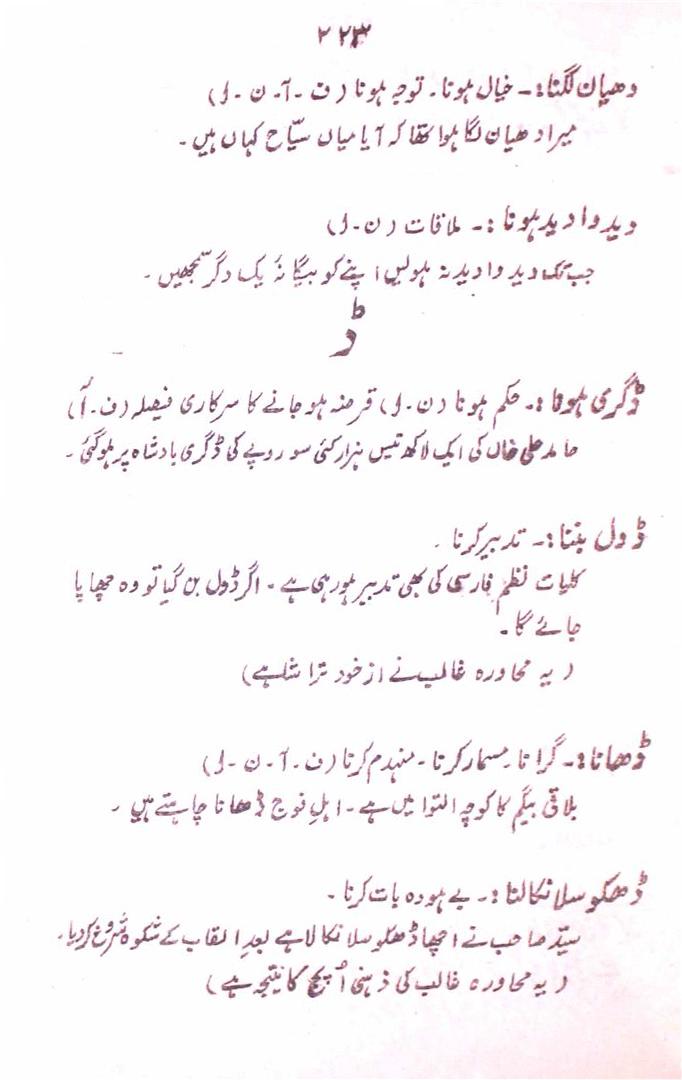 ۲۲۳
دھیان لگنا:۔ خیال ہونا۔ توجہ ہونا (ف ۔ آ۔ ن ۔ ل)
میرا دھیان لگا ہوا تھا کہ آیا میاں سیّاح کہاں ہیں۔
دید وا دید ہونا :۔ ملاقات (ن۔ ل)
جب تک دید وا دید نہ ہولیں اپنے کو بیگانۂ یک دگر سمجھیں۔
ڈ
ڈگری ہونا :۔ حکم ہونا (ن۔ ل) قرضہ ہو جانے کا سرکاری فیصلہ (ف۔ آ)
حامد علی خاں کی ایک لاکھ تیس ہزار کئی سو روپے کی ڈگری بادشاہ پر ہوگئی۔
ڈول بننا:۔ تدبیر کرنا ۔
کلیات نظم فارسی کی بھی تدبیر ہو رہی ہے ۔ اگر ڈول بن گیا تو وہ چھاپا
جائے گا۔
(یہ محاورہ غالب نے از خود تراشا ہے)
ڈھانا:۔ گرانا۔ مسمار کرنا ۔ منہدم کرنا (ف ۔ آ ۔ ن ۔ ل)
بلاقی بیگم کا کوچہ التوا میں ہے ۔ اہلِ فوج ڈھانا چاہتے ہیں ۔
ڈھکوسلا نکالنا :۔ بے ہودہ بات کرنا ۔
سیّد صاحب نے اچھا ڈھکوسلا نکالا ہے بعدِ القاب کے شکوہ شروع کر دیا۔
(یہ محاورہ غالب کی ذہنی اُپچ کا نتیجہ ہے)